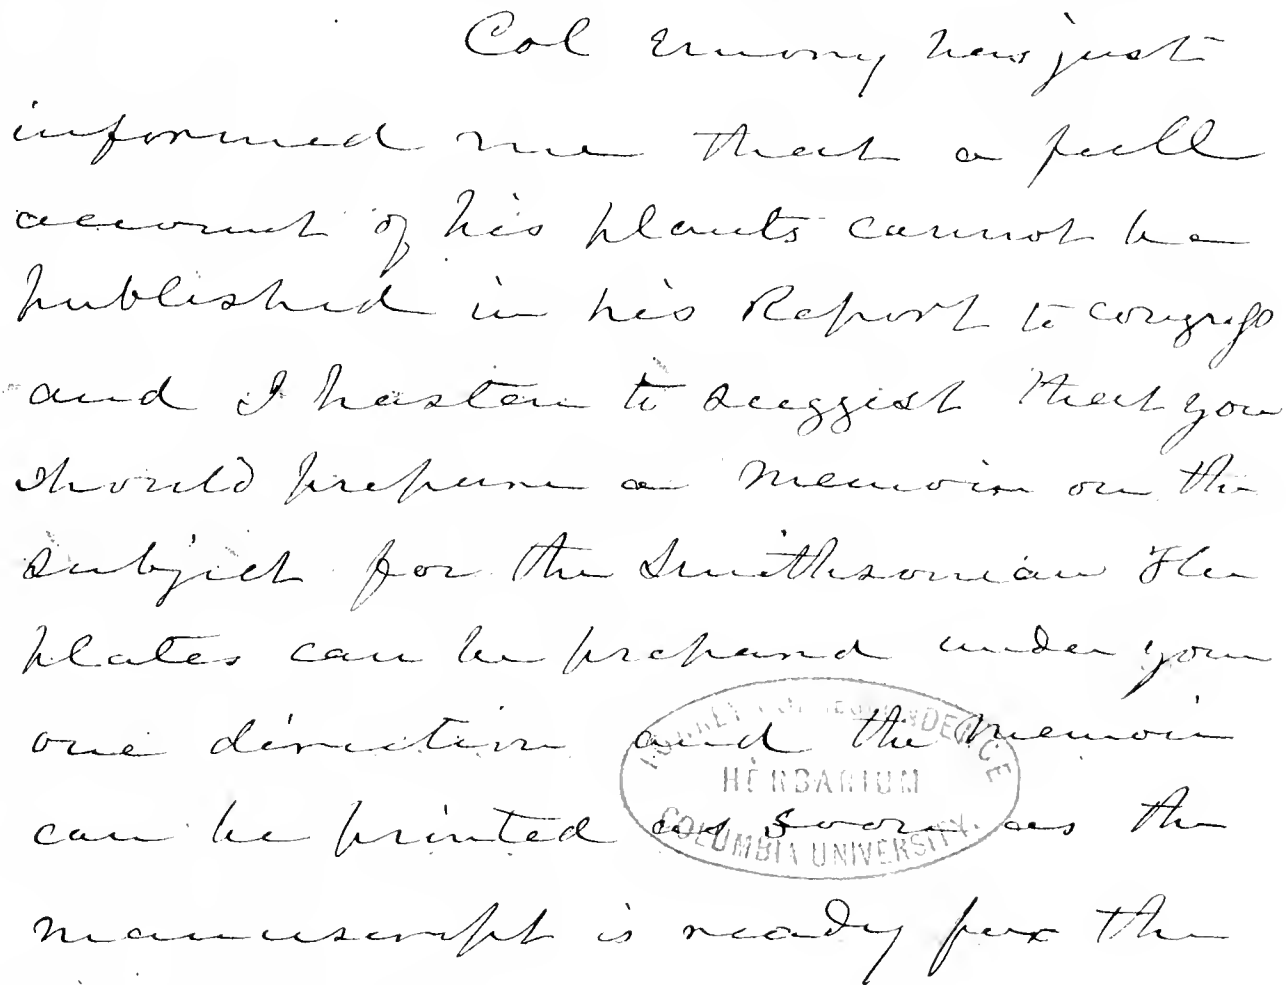 Col Emory has just
informed me that a full
account of his plants cannot be
published in his Report to congress
and I hasten to suggest that you
should prepare a memoir on the
subject for the Smithsonian The
plates can be prepared under your
one direction and the memoir
can be printed as soon as the
manuscript is ready for the
TORREY CORRESPONDENCE
HERBARIUM
COLUMBIA UNIVERSITY.